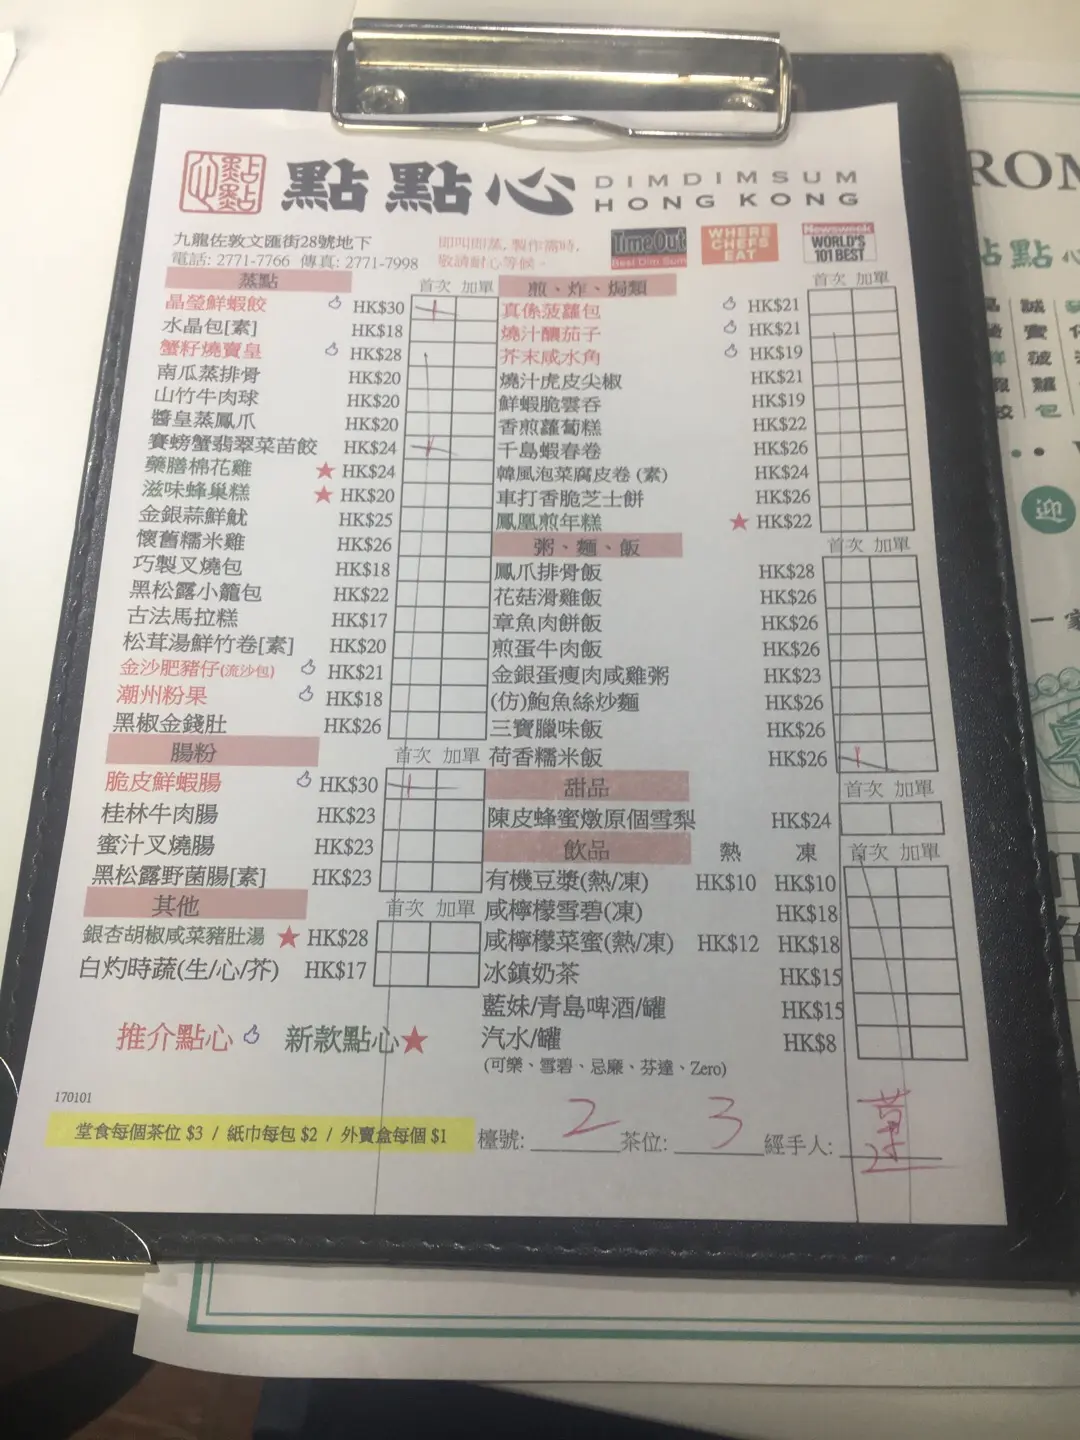 點點心 DIMDIMSUM
HONG KONG
九龍佐敦文匯街28號地下
電話: 2771-7766 傳真: 2771-7998
即叫即蒸, 製作需時,
敬請耐心等候。
TimeOut
Best Dim Sum
WHERE
CHEFS
EAT
Newsweek
WORLD'S
101 BEST
蒸點 首次 加單
晶瑩鮮蝦餃 HK$30
水晶包[素] HK$18
蟹籽燒賣皇 HK$28
南瓜蒸排骨 HK$20
山竹牛肉球 HK$20
醬皇蒸鳳爪 HK$20
賽螃蟹翡翠菜苗餃 HK$24
藥膳棉花雞 ★ HK$24
滋味蜂巢糕 ★ HK$20
金銀蒜鮮魷 HK$25
懷舊糯米雞 HK$26
巧製叉燒包 HK$18
黑松露小籠包 HK$22
古法馬拉糕 HK$17
松茸湯鮮竹卷[素] HK$20
金沙肥豬仔(流沙包) HK$21
潮州粉果 HK$18
黑椒金錢肚 HK$26
腸粉 首次 加單
脆皮鮮蝦腸 HK$30
桂林牛肉腸 HK$23
蜜汁叉燒腸 HK$23
黑松露野菌腸[素] HK$23
其他 首次 加單
銀杏胡椒咸菜豬肚湯 ★ HK$28
白灼時蔬(生/心/芥) HK$17
推介點心 新款點心★
170101
堂食每個茶位 $3 / 紙巾每包 $2 / 外賣盒每個 $1
煎、炸、焗類 首次 加單
真係菠蘿包 HK$21
燒汁釀茄子 HK$21
芥末咸水角 HK$19
燒汁虎皮尖椒 HK$21
鮮蝦脆雲吞 HK$19
香煎蘿蔔糕 HK$22
千島蝦春卷 HK$26
韓風泡菜腐皮卷 (素) HK$24
車打香脆芝士餅 HK$26
鳳凰煎年糕 ★ HK$22
粥、麵、飯 首次 加單
鳳爪排骨飯 HK$28
花菇滑雞飯 HK$26
章魚肉餅飯 HK$26
煎蛋牛肉飯 HK$26
金銀蛋瘦肉咸雞粥 HK$23
(仿)鮑魚絲炒麵 HK$26
三寶臘味飯 HK$26
荷香糯米飯 HK$26
甜品 首次 加單
陳皮蜂蜜燉原個雪梨 HK$24
飲品 熱 凍 首次 加單
有機豆漿(熱/凍) HK$10 HK$10
咸檸檬雪碧(凍) HK$18
咸檸檬菜蜜(熱/凍) HK$12 HK$18
冰鎮奶茶 HK$15
藍妹/青島啤酒/罐 HK$15
汽水/罐 HK$8
(可樂、雪碧、忌廉、芬達、Zero)
檯號: 2 茶位: 3 經手人:
點心
迎
一